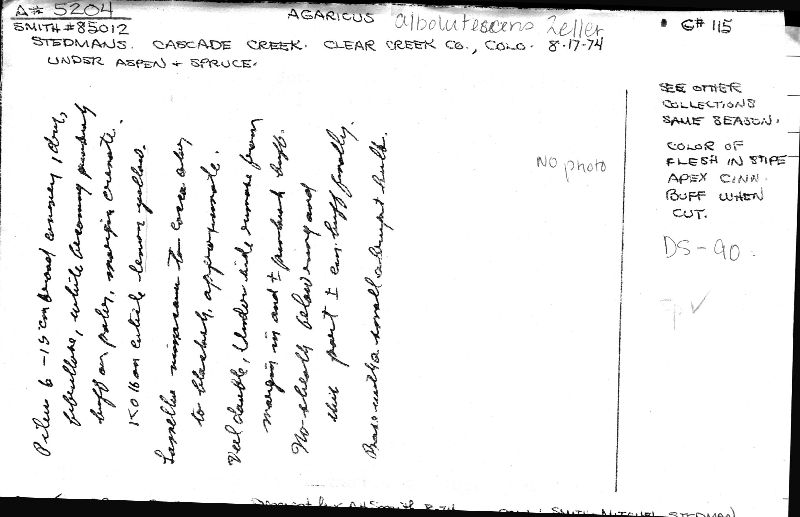 A# 5204
SMITH #85012
AGARICUS albolutescens Zeller
G# 115
STEDMANS. CASCADE CREEK. CLEAR CREEK CO., COLO. 8-17-74
UNDER ASPEN + SPRUCE.
Pileus 6-15 cm broad convex, dry,
fibrillose, white becoming pinkish
buff or paler, margin crenate.
KOH on cuticle lemon yellow.
Lamellae cocoa
to blackish, approximate.
Veil double, under side from
margin in and ± pinkish buff.
No sheath below ring and
this part ± cin. buff finally.
Base with a small abrupt bulb.
NO photo
SEE OTHER
COLLECTIONS
SAME SEASON.
COLOR OF
FLESH IN STIPE
APEX CINN.
BUFF WHEN
CUT.
DS-90.
Sp ✓
AH Smith 8-74
SMITH, MITCHEL, STEDMAN)